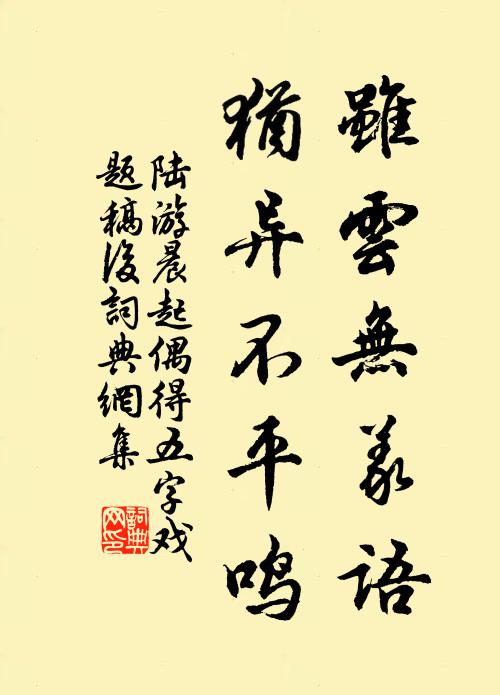 雖雲無義語
猶异不平鸣
陆游晨起偶得五字戏
题稿後詞典網集
詞典
网印